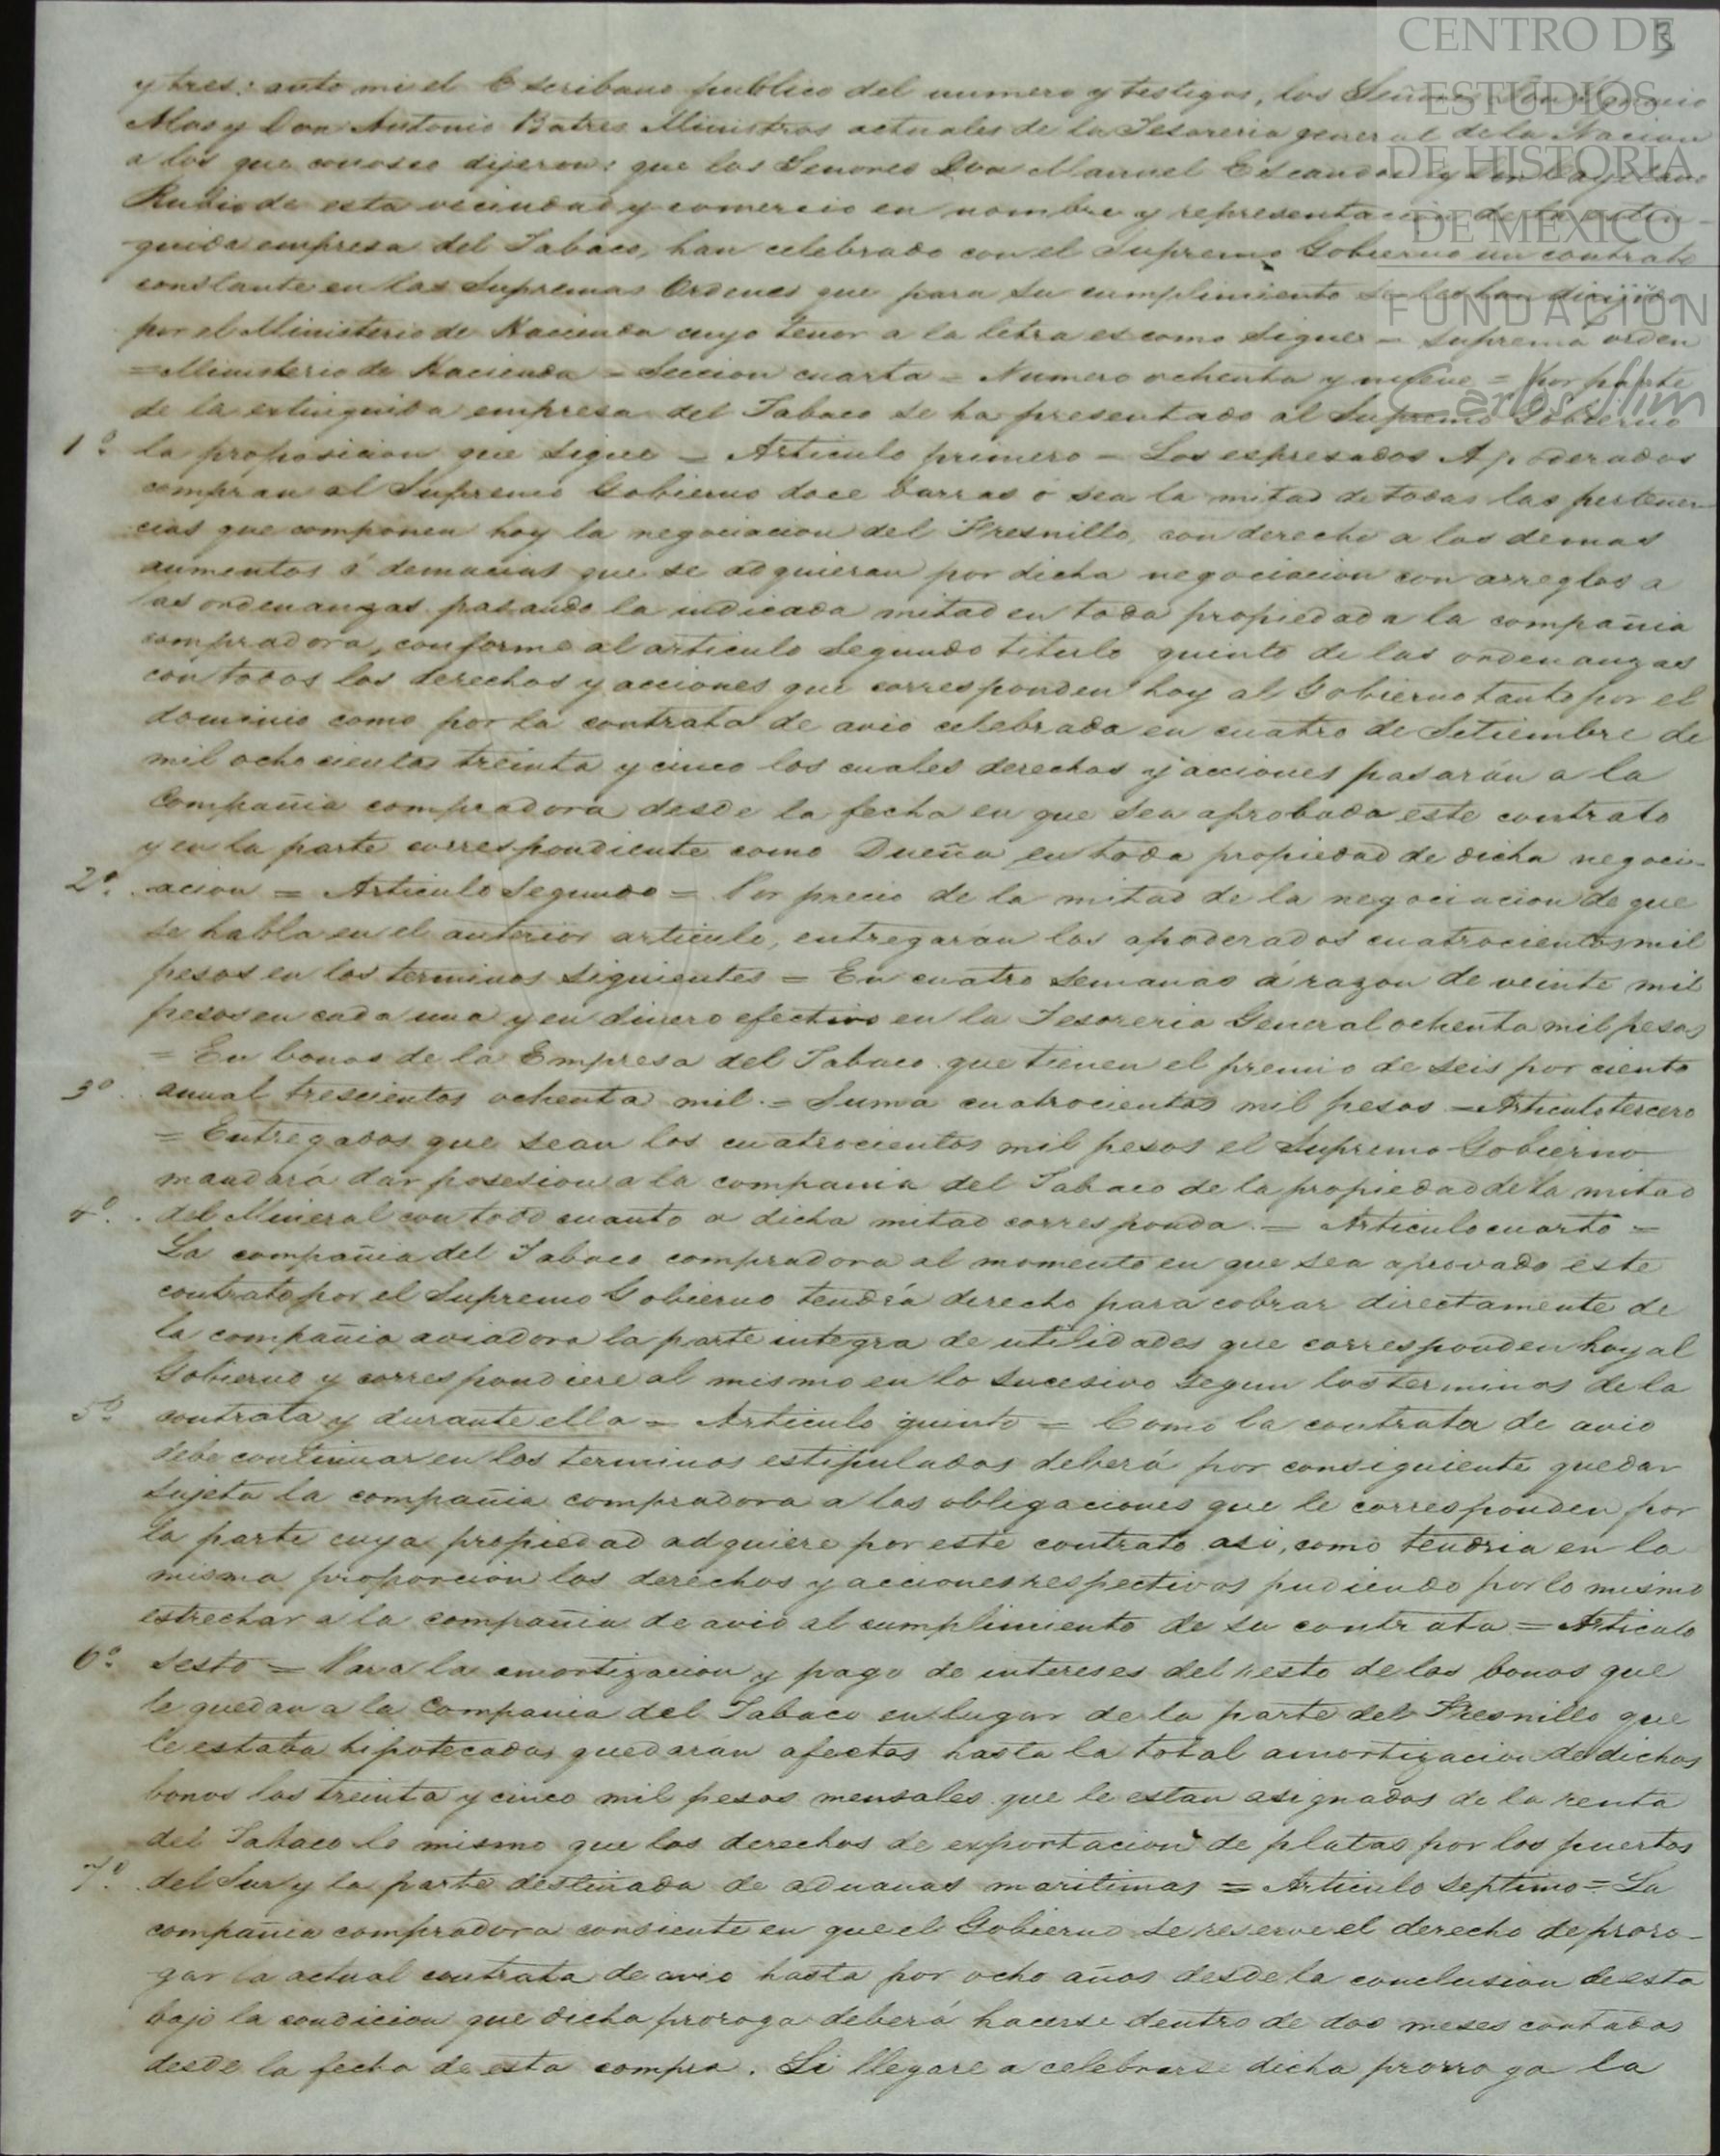 CENTRO DE
ESTUDIOS
DE HISTORIA
DE MÉXICO
FUNDACIÓN
Carlos Slim
3
y tres: ante mi el Escribano publico del numero y testigos, los Señores Don Ygnacio
Mas y Don Antonio Batres Ministros actuales de la Tesoreria general de la Nacion
a los que conosco dijeron: que los Senores Don Manuel Escandon y Don Cayetano
Rubio de esta vecindad y comercio en nombre y representacion de la estin-
guida empresa del Tabaco, han celebrado con el Supremo Gobierno un contrato
constante en las Supremas Ordenes que para su cumplimiento se les han dirijido
por el Ministerio de Hacienda cuyo tenor a la letra es como sigue = Suprema orden
= Ministerio de Hacienda = Seccion cuarta = Numero ochenta y nueve = Por parte
de la extinguida empresa del Tabaco se ha presentado al Supremo Gobierno
1º. la proposicion que sigue = Articulo primero = Los espresados Apoderados
compran al Supremo Gobierno doce barras ó sea la mitad de todas las pertenen-
cias que componen hoy la negociacion del Fresnillo, con derecho a los demas
aumentos ó demacias que se adquieran por dicha negociacion con arreglos a
las ordenanzas pasando la indicada mitad en toda propiedad a la compañia
compradora, conforme al articulo segundo titulo quinto de las ordenanzas
con todos los derechos y acciones que corresponden hoy al Gobierno tanto por el
dominio como por la contrata de avio celebrada en cuatro de Setiembre de
mil ochocientos treinta y cinco los cuales derechos y acciones pasarán a la
Compañia compradora desde la fecha en que sea aprobada este contrato
y en la parte correspondiente como Dueña en toda propiedad de dicha negoci-
2º. acion = Articulo Segundo = Por precio de la mitad de la negociacion de que
se habla en el anterior articulo, entregarán los apoderados cuatrocientos mil
pesos en los terminos siguientes = En cuatro semanas á razon de veinte mil
pesos en cada una y en dinero efectivo en la Tesoreria General ochenta mil pesos
= En bonos de la Empresa del Tabaco que tienen el premio de seis por ciento
3º. anual trescientos ochenta mil. = Suma cuatrocientos mil pesos = Articulo tercero
= Entregados que sean los cuatrocientos mil pesos el Supremo Gobierno
mandará dar posesion a la compania del Tabaco de la propiedad de la mitad
4º. del Mineral con todo cuanto a dicha mitad corresponda. = Articulo cuarto =
La compañia del Tabaco compradora al momento en que sea aprovado este
contrato por el Supremo Gobierno tendrá derecho para cobrar directamente de
la compañia aviadora la parte integra de utilidades que corresponden hoy al
Gobierno y correspondiere al mismo en lo sucesivo segun los terminos de la
5º. contrata y durante ella = Articulo quinto = Como la contrata de avio
debe continuar en los terminos estipulados deberá por consiguiente quedar
sujeta la compañia compradora a las obligaciones que le corresponden por
la parte cuya propiedad adquiere por este contrato asi, como tendria en la
misma proporcion los derechos y acciones respectivos pudiendo por lo mismo
estrechar a la compañia de avio al cumplimiento de su contrata = Articulo
6º. sesto = Para la amortizacion y pago de intereses del resto de los bonos que
le quedan a la Compania del Tabaco en lugar de la parte del Fresnillo que
le estaba hipotecadas quedaran afectas hasta la total amortizacion de dichos
bonos los treinta y cinco mil pesos mensales que le estan asignados de la renta
del Tabaco lo mismo que los derechos de exportacion de platas por los puertos
7º. del Sur y la parte destinada de aduanas maritimas = Articulo septimo = La
compañia compradora consiente en que el Gobierno se reserve el derecho de proro-
gar la actual contrata de avio hasta por ocho años desde la conclusion de esta
bajo la condicion que dicha proroga deberá hacerse dentro de dos meses contados
desde la fecha de esta compra. Si llegare a celebrarse dicha prorroga la